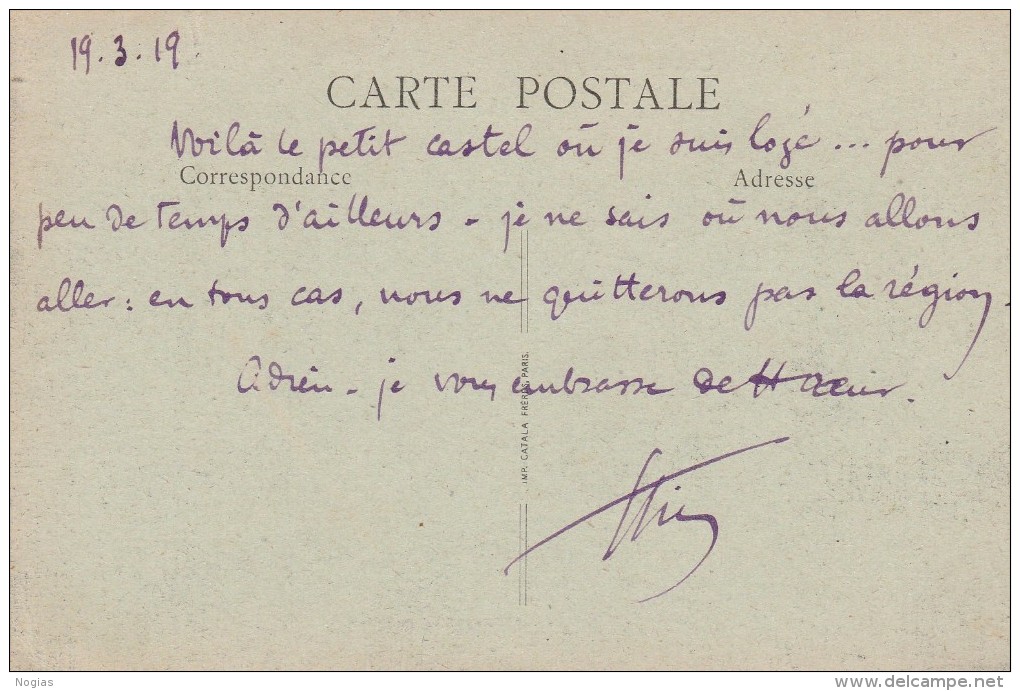 19.3.19
CARTE POSTALE
Voilà le petit castel où je suis logé ... pour
Correspondance
Adresse
peu de temps d'ailleurs - je ne sais où nous allons
aller : en tous cas, nous ne quitterons pas la région.
Adieu - je vous embrasse de cœur.
IMP. CATALA FRÈRES, PARIS.
Nogias
delcampe.net